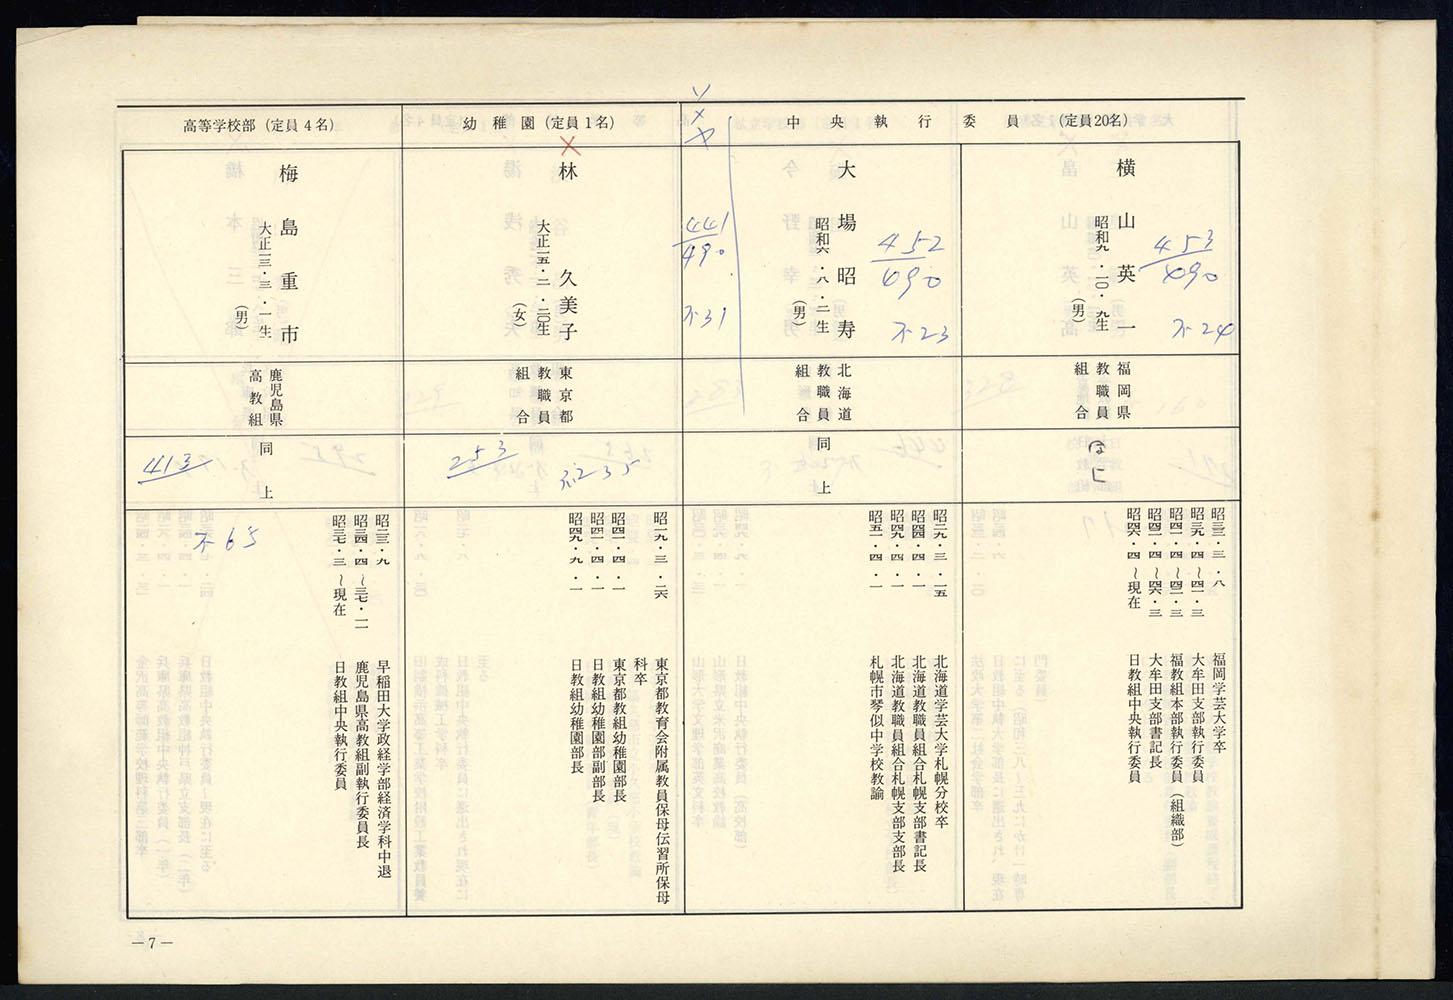 中央執行委員（定員20名）
横山英一
昭和九・一〇・九生
（男）
453
490
不24
福岡県
教職員
組合
昭三三・三・八
福岡学芸大学卒
昭三九・四～四一・三
大牟田支部執行委員
昭四一・四～四二・三
福教組本部執行委員（組織部）
昭四二・四～四六・三
大牟田支部書記長
昭四六・四～現在
日教組中央執行委員
大場昭寿
昭和六・八・二生
（男）
452
490
不23
441
490
不31
北海道
教職員
組合
同上
昭二九・三・一五
北海道学芸大学札幌分校卒
昭四四・四・一
北海道教職員組合札幌支部書記長
昭四九・四・一
北海道教職員組合札幌支部支部長
昭五一・四・一
札幌市琴似中学校教諭
幼稚園（定員1名）
林久美子
大正一五・二・二〇生
（女）
東京都
教職員
組合
253
不235
昭一九・三・二六
東京都教育会附属教員保母伝習所保母
科卒
昭四一・四・一
東京都教組幼稚園部長
昭四二・四・一
日教組幼稚園部副部長
昭四九・九・一
日教組幼稚園部長
高等学校部（定員4名）
梅島重市
大正一三・三・一生
（男）
鹿児島県
高教組
同上
413
不65
昭二三・九
早稲田大学政経学部経済学科中退
昭三四・四～三七・一一
鹿児島県高教組副執行委員長
昭三七・三～現在
日教組中央執行委員
—7—